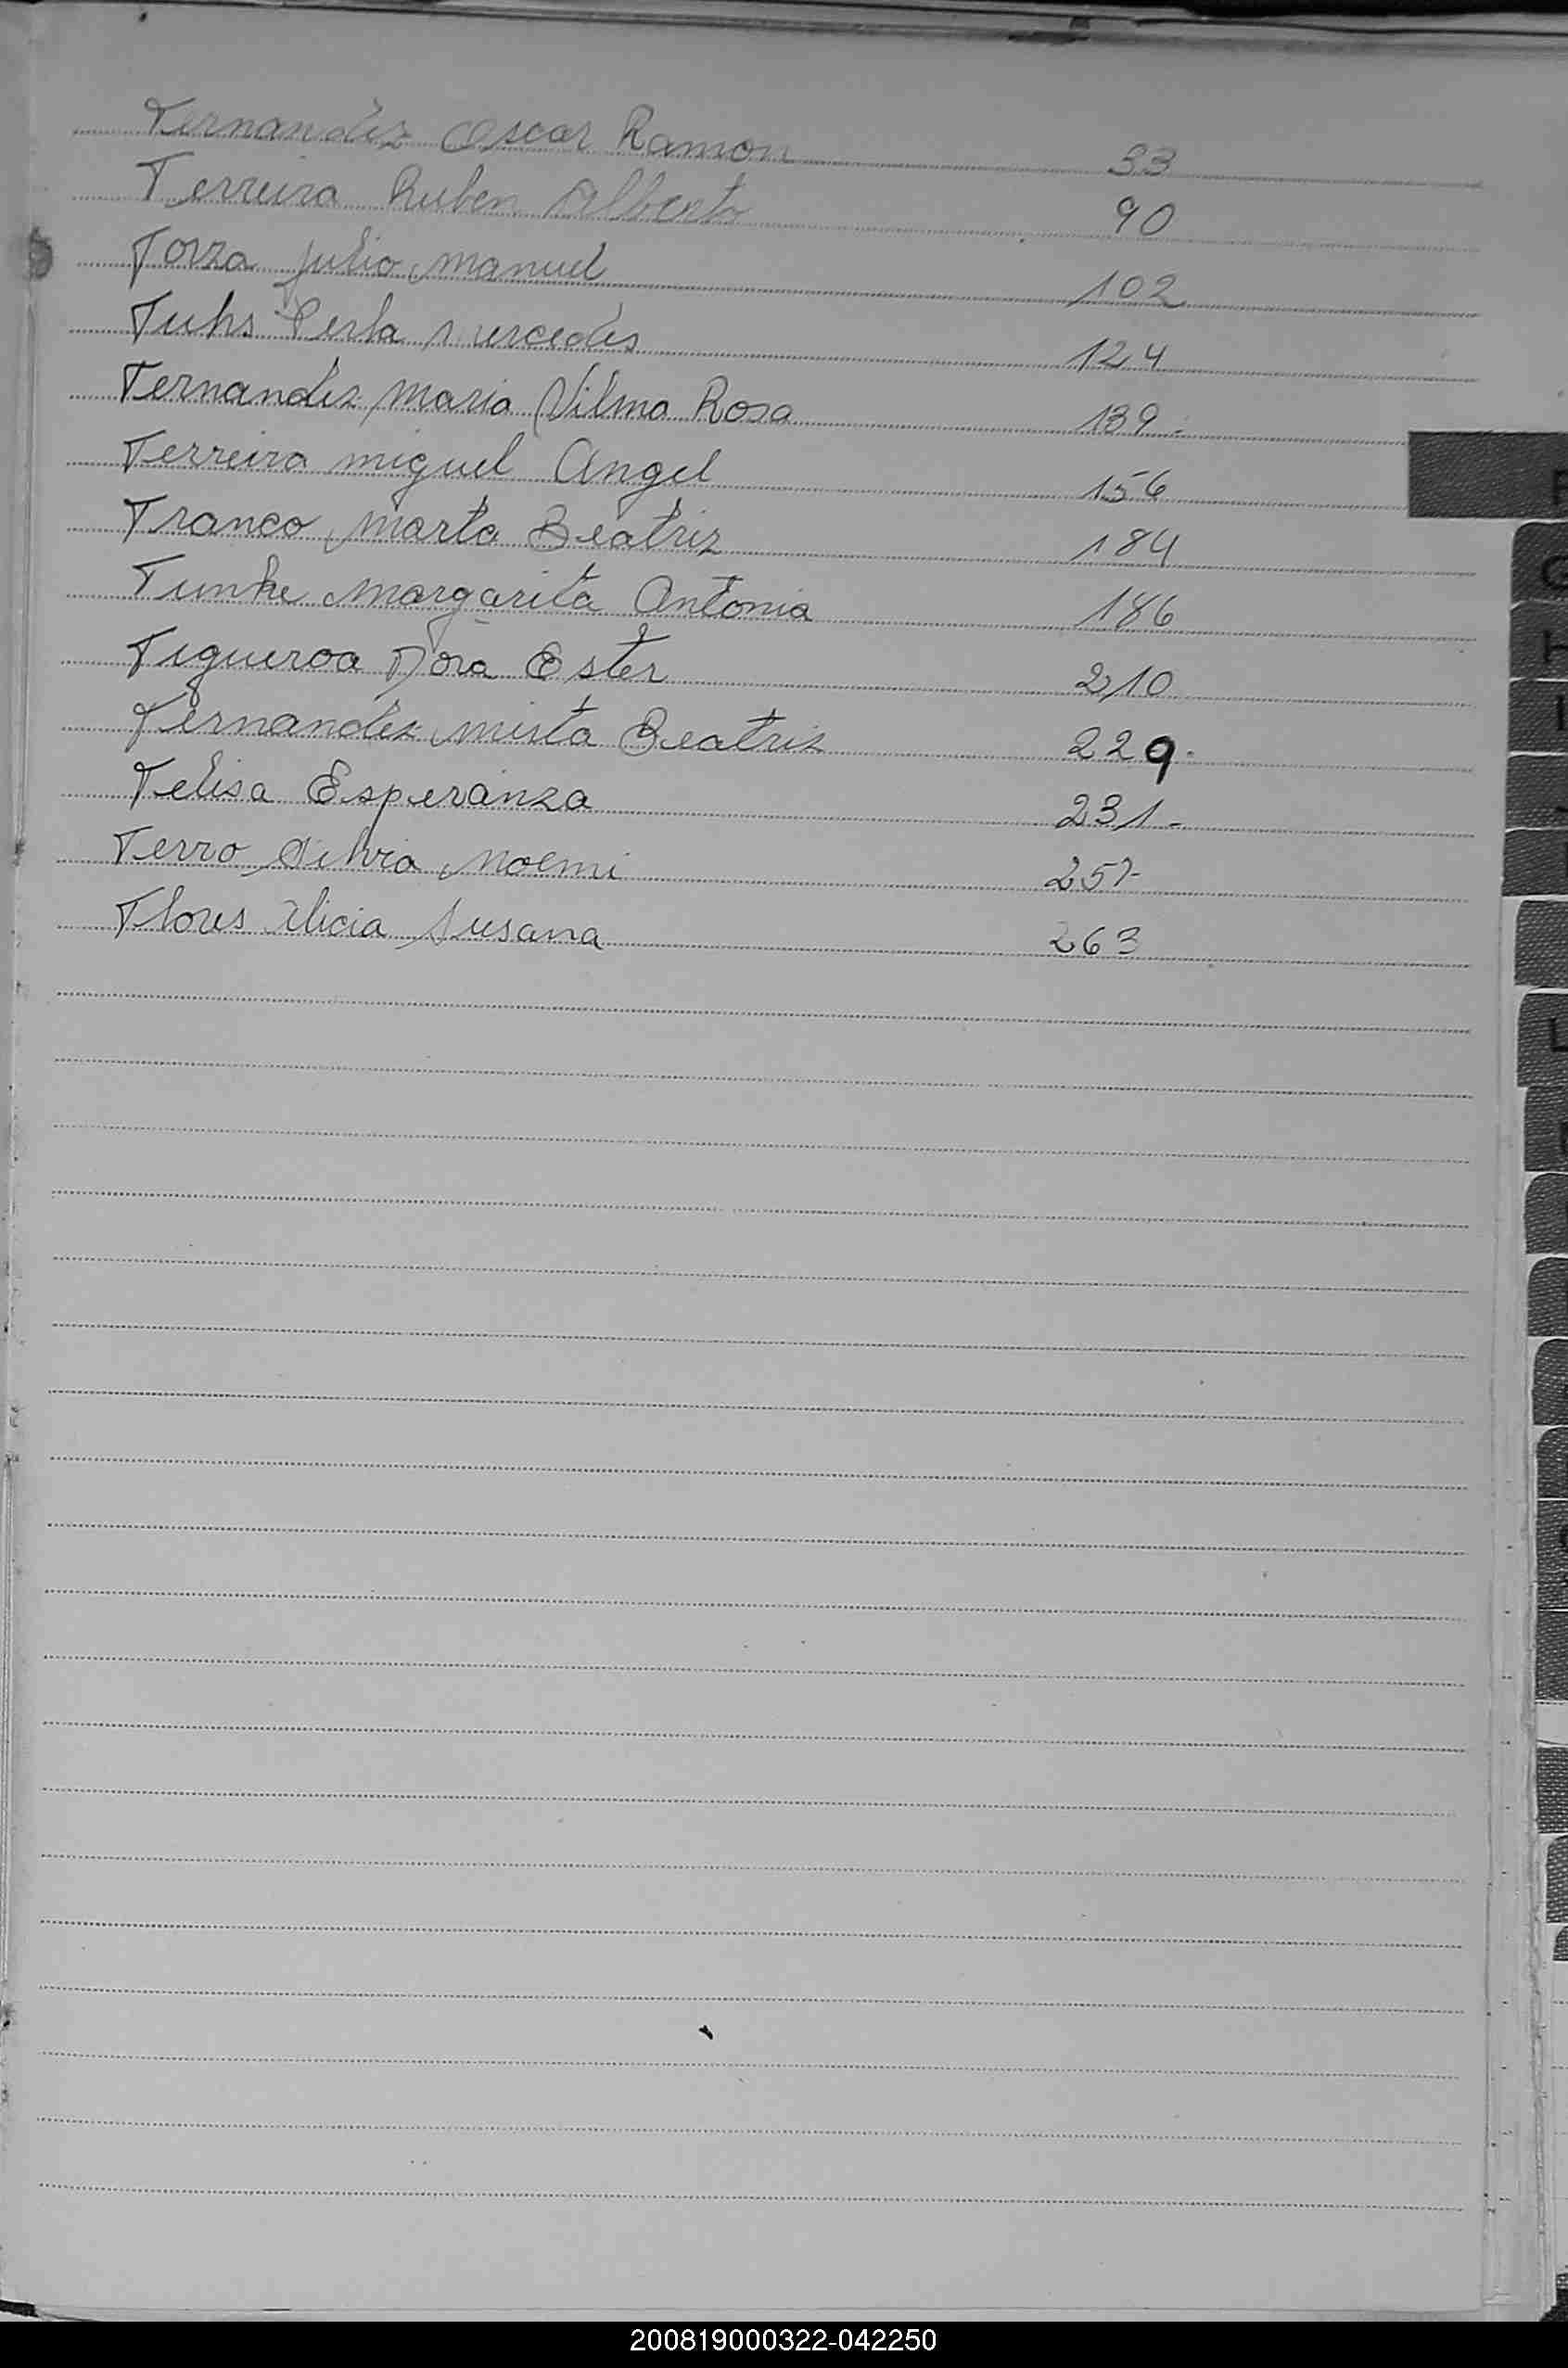 Fernandez Oscar Ramon 33
Ferreira Ruben Alberto 90
Forza Julio Manuel 102
Fuhs Perla Mercedes 124
Fernandez Maria Vilma Rosa 139-
Ferreira Miguel Angel 156
Franco Marta Beatriz 184
Funke Margarita Antonia 186
Figueroa Dora Ester 210
Fernandez Mirta Beatriz 229-
Felisa Esperanza 231-
Ferro Silvia Noemi 257-
Flores Alicia Susana 263
F
G
H
I
L
200819000322-042250